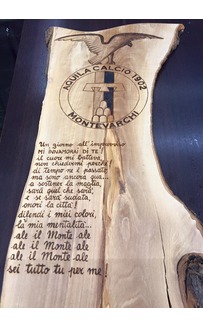 AQUILA CALCIO 1902
MONTEVARCHI
Un giorno all'improvviso
MI INNAMORAI DI TE!
il cuore mi batteva,
non chiedermi perchè!
di tempo ne è passato
ma sono ancora qua...
a sostener la maglia,
sarà quel che sarà,
e se sarà sudata,
onori la città!
difendi i miei colori,
la mia mentalità...
ale il Monte ale
ale il Monte ale
ale il Monte ale
sei tutto tu per me!